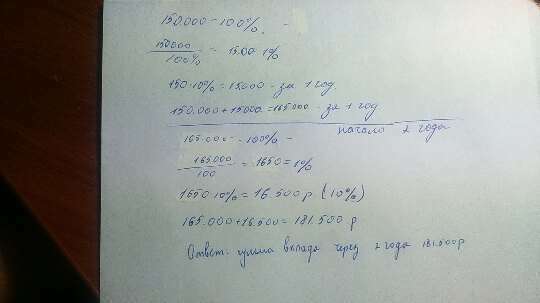 150.000 - 100% -
150000 / 100% = 1500 - 1%
150 · 10% = 15000 - за 1 год.
150.000 + 15000 = 165000 - за 1 год
начало 2 года
165.000 - 100% -
165000 / 100 = 1650 = 1%
1650 · 10% = 16.500 р (10%)
165.000 + 16.500 = 181.500 р
Ответ: сумма вклада через 2 года 181.500р